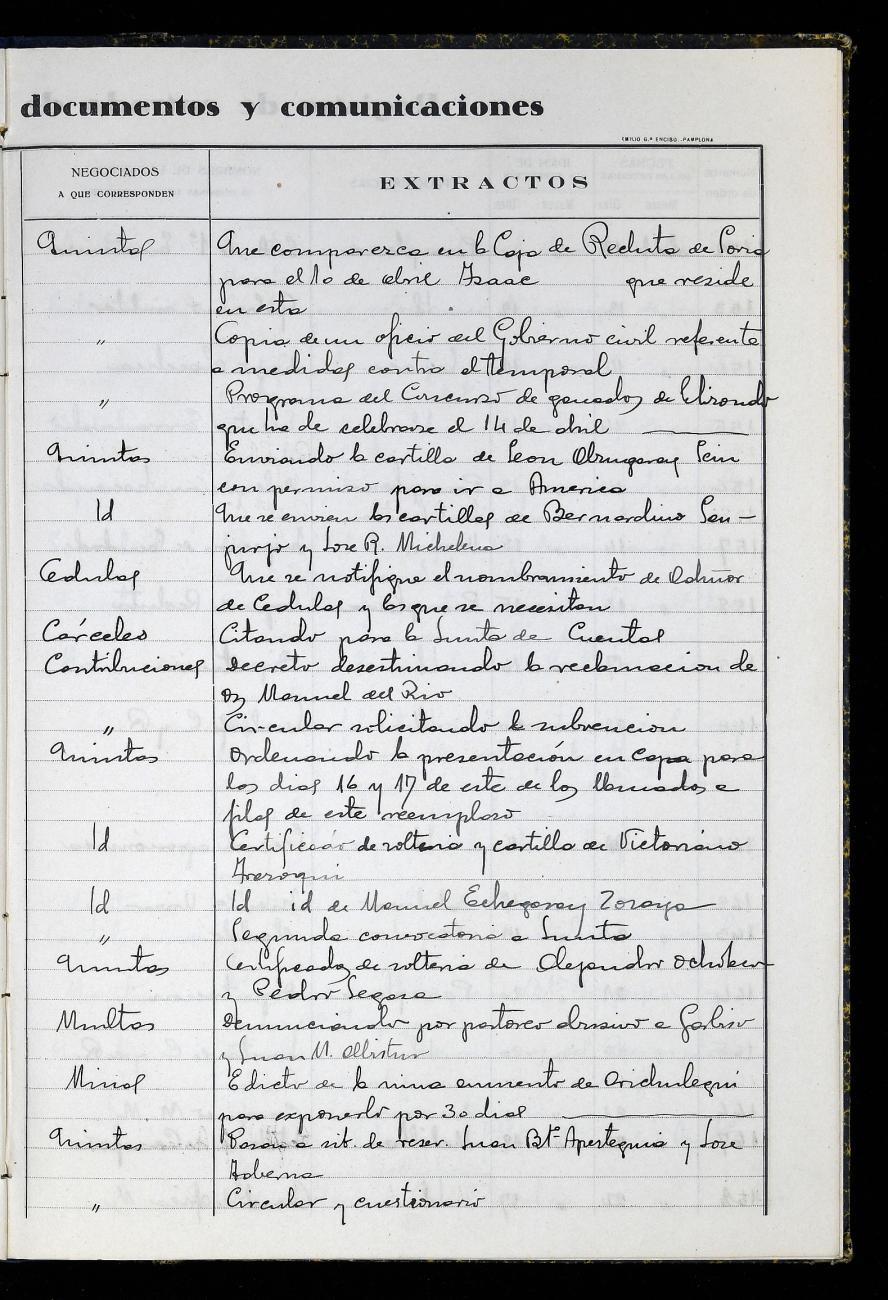 documentos y comunicaciones
EMILIO G.ª ENCISO.-PAMPLONA
NEGOCIADOS
A QUE CORRESPONDEN
EXTRACTOS
Quintas Que comparezca en la Caja de Recluta de Soria
para el 10 de abril Isaac que reside
en esta
" Copia de un oficio del Gobierno civil referente
a medidas contra el temporal
" Programa del Concurso de ganados de Elizondo
que ha de celebrarse el 14 de abril
Quintas Enviando la cartilla de Leon Sein
con permiso para ir a America
Id Que se envien las cartillas de Bernardino San-
jurjo y Jose R. Michelena
Cedulas Que se notifique el nombramiento de
de Cedulas y las que se necesitan
Cárceles Citando para la Junta de Cuentas
Contribuciones Decreto desestimando la reclamacion de
Dn Manuel del Rio
" Circular solicitando la subvencion
Quintas Ordenando la presentación en Caja para
los dias 16 y 17 de este de los llamados a
filas de este reemplazo
Id Certificado de solteria y cartilla de Victoriano
Id Id id de Manuel Echegaray Zoraya
" Segunda convocatoria a Junta
Quintas Certificados de solteria de Alejandro
y Pedro Segasa
Multas Denunciando por pastoreo abusivo a Garbiso
y Juan M. Albistur
Minas Edicto de la mina aumento de Arichulegui
para exponerlo por 30 dias
Quintas Pasan a sit. de reser. Juan Bte Apesteguia y Jose
Taberna
" Circular y cuestionario